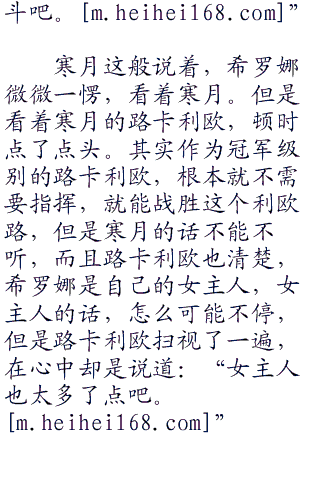 斗吧。[m.heihei168.com]”
寒月这般说着，希罗娜
微微一愣，看着寒月。但是
看着寒月的路卡利欧，顿时
点了点头。其实作为冠军级
别的路卡利欧，根本就不需
要指挥，就能战胜这个利欧
路，但是寒月的话不能不
听，而且路卡利欧也清楚，
希罗娜是自己的女主人，女
主人的话，怎么可能不停，
但是路卡利欧扫视了一遍，
在心中却是说道：“女主人
也太多了点吧。
[m.heihei168.com]”